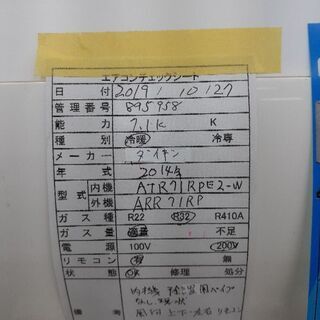 エアコンチェックシート
日 付 2019/10/27
管理番号 895958
能力 7.1K K
種別 冷暖 冷専
メーカー ダイキン
年式 2014年
型式 内機 ATR71RPE2-W
外機 ARR71RP
ガス種 R22 R32 R410A
ガス量 適量 不足
電源 100V 200V
リモコン 有 無
状態 OK 修理 処分
内機 設置用パイプ
なし 現状
風向 上下左右 リモコン